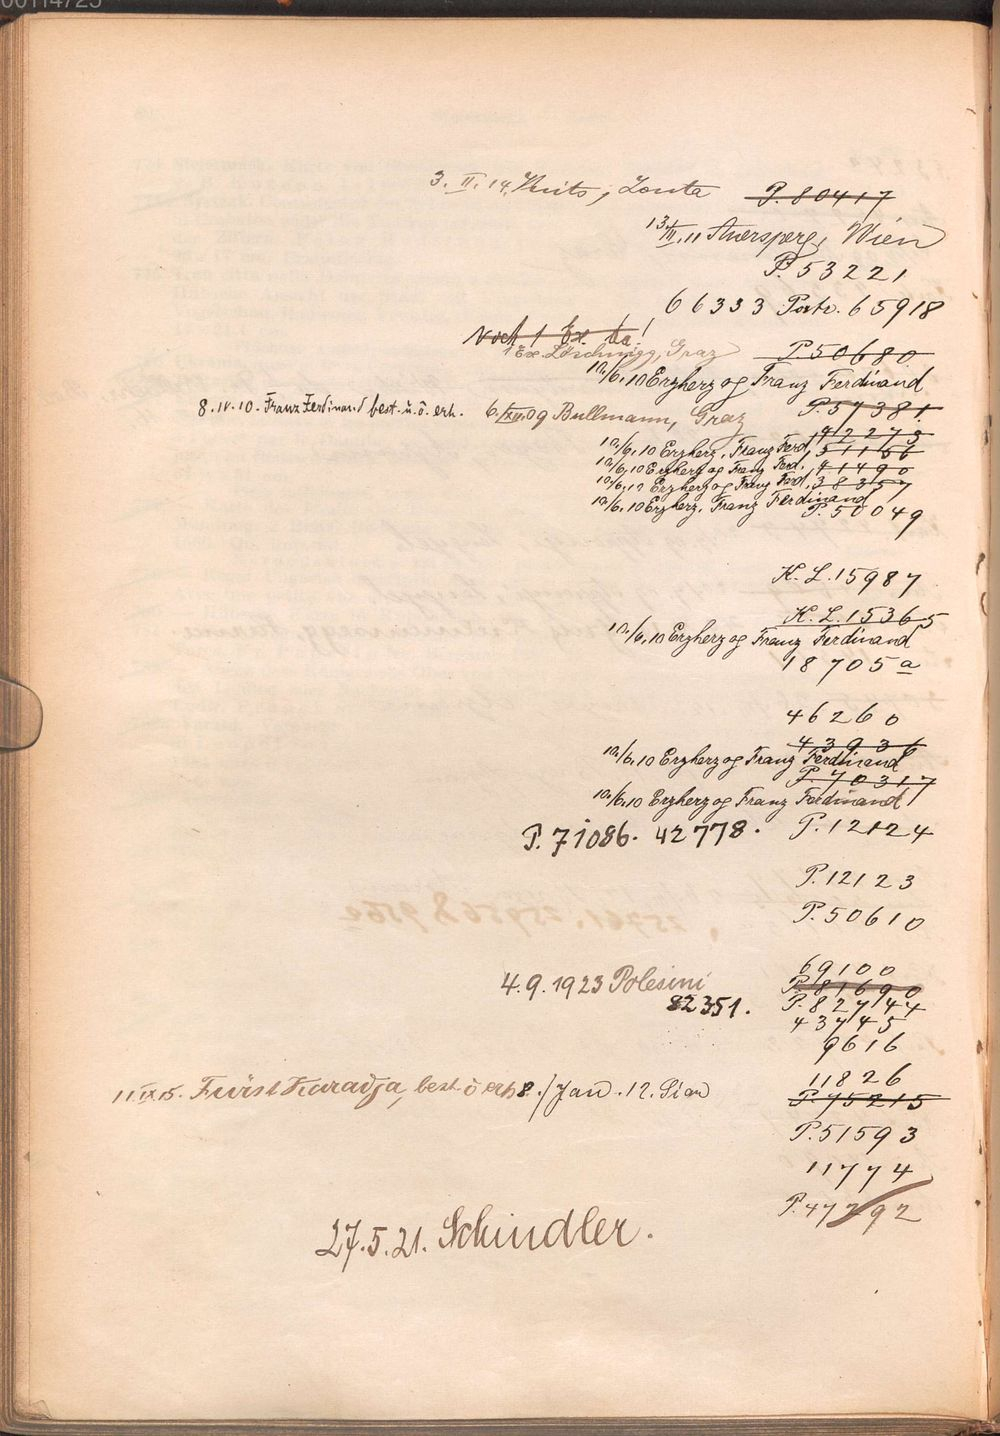 00114725
3. II. 14. Veits, Zouta P. 80417
13/III. 11 Auersperg, Wien
P. 53221
66333 Portr. 65918
Noch 1 Ex. da!
1 Ex. Löschnigg, Graz P 50680
10./6. 10 Erzherzog Franz Ferdinand
8. IV. 10. Franz Ferdinand best. u. ö. erh. 6./XII. 09 Bullmann, Graz P. 57381.
42273
10./6. 10 Erzherz. Franz Ferd. 51156
10./6. 10 Erzherzog Franz Ferd. 41490
10./6. 10 Erzherzog Franz Ferd. 38357
10./6. 10 Erzherz. Franz Ferdinand
P. 50049
K. L. 15987
K. L. 15365
10./6. 10 Erzherzog Franz Ferdinand
18705 a
46260
43936
10./6. 10 Erzherzog Franz Ferdinand
P. 70317
10./6. 10 Erzherzog Franz Ferdinand
P. 71086. 42778. P. 12124
P. 12123
P. 50610
69100
4. 9. 1923 Polesini P. 81690
82351. P. 82744
43745
9616
11826
11. IX 15. Fürst Karadja, best. ö erh 8./Jan. 12. P. 75215
P. 51593
11774
P. 47292
27. 5. 21. Schindler.